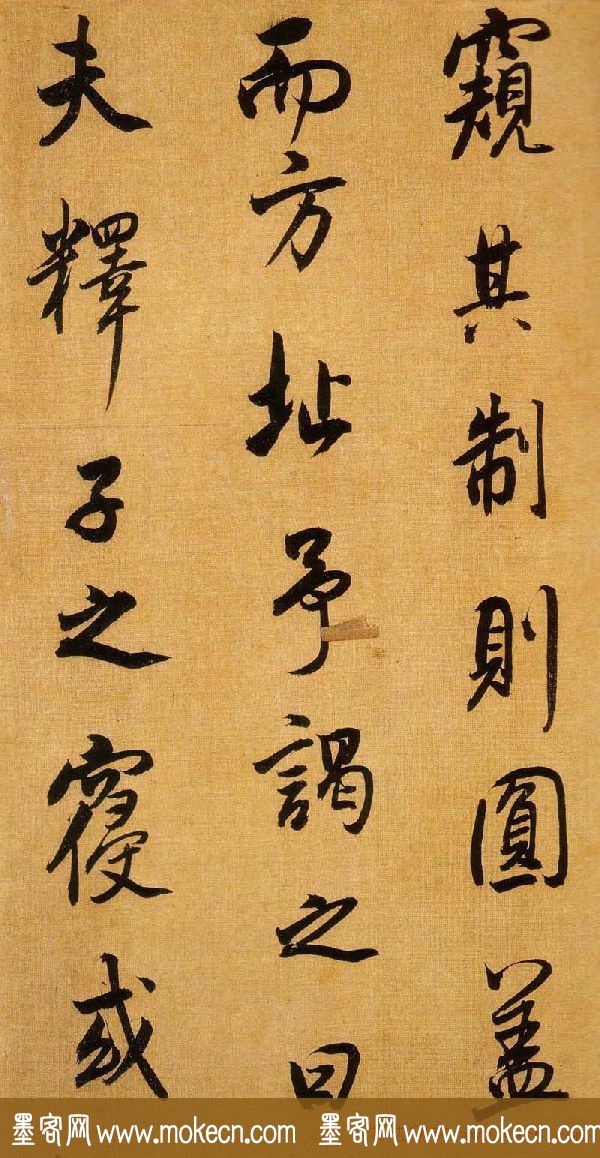 窺其制則圓蓋
而方址予謁之曰
夫釋子之寢或
墨客网 www.mokecn.com 墨客网 www.mokecn.com